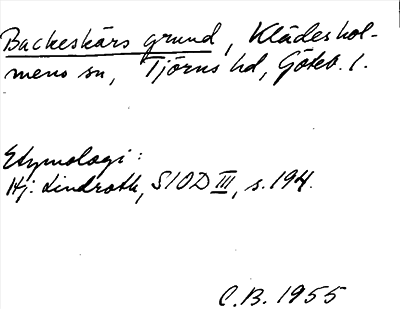 Backeskärs grund, Klädeshol-
mens sn, Tjörns hd, Göteb. l.
Etymologi:
Hj. Lindroth, SIOD III, s. 194.
C.B. 1955